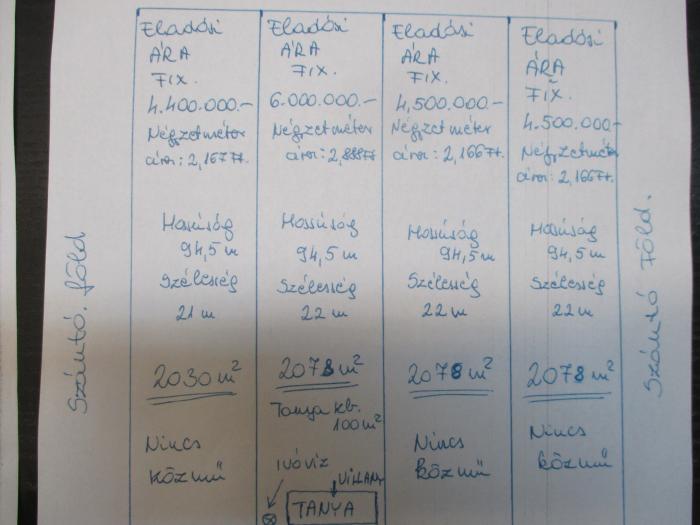 Szántó. föld
Eladási
ÁRA
FIX.
4.400.000.-
Négyzetméter
áron: 2,167 Ft.
Hossúság
94,5 m
Szélesség
21 m
2030 m²
Nincs
közmű
Eladási
ÁRA
FIX.
6.000.000.-
Négyzetméter
áron: 2,888 Ft
Hossúság
94,5 m
Szélesség
22 m
2078 m²
Tanya kb.
100 m²
IVÓVÍZ
VILLANY
TANYA
Eladási
ÁRA
FIX.
4,500.000.-
Négyzetméter
áron: 2,166 Ft.
Hossúság
94,5 m
Szélesség
22 m
2078 m²
Nincs
közmű
Eladási
ÁRA
FIX.
4.500.000.-
Négyzetméter
áron: 2,166 Ft.
Hossúság
94,5 m
Szélesség
22 m
2078 m²
Nincs
közmű
Szántó Föld.